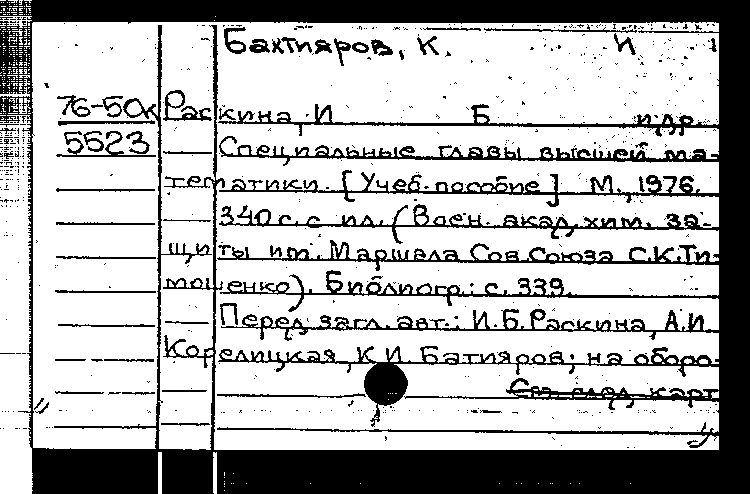 Бахтияров, К. И
76-50к Раскина, И Б и др
5523 Специальные главы высшей ма-
тематики. [Учеб. пособие] М., 1976.
340 с. с ил. (Воен. акад. хим. за-
щиты им. Маршала Сов. Союза С.К. Ти-
мошенко). Библиогр.: с. 339.
Перед загл. авт.: И.Б. Раскина, А.И.
Корелицкая, К И. Батияров; на оборо-
См след. карт